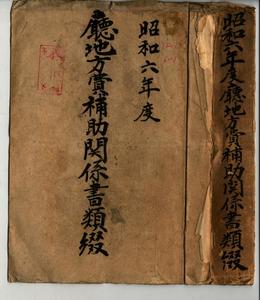 昭和六年度
廳地方賞補助関係書類綴
昭和六年度廳地方賞補助関係書類綴